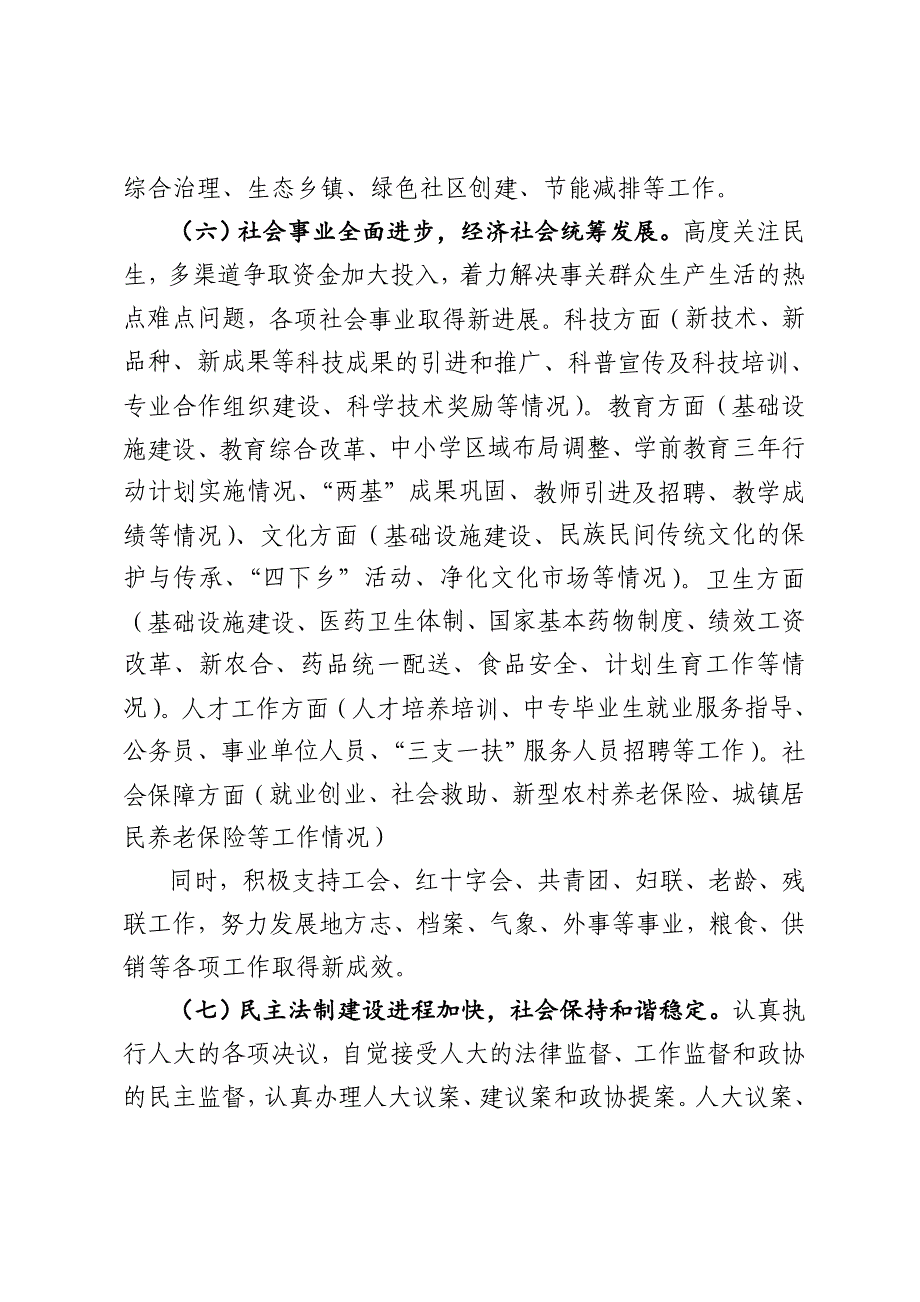 综合治理、生态乡镇、绿色社区创建、节能减排等工作。
（六）社会事业全面进步，经济社会统筹发展。高度关注民
生，多渠道争取资金加大投入，着力解决事关群众生产生活的热
点难点问题，各项社会事业取得新进展。科技方面（新技术、新
品种、新成果等科技成果的引进和推广、科普宣传及科技培训、
专业合作组织建设、科学技术奖励等情况）。教育方面（基础设
施建设、教育综合改革、中小学区域布局调整、学前教育三年行
动计划实施情况、“两基”成果巩固、教师引进及招聘、教学成
绩等情况）、文化方面（基础设施建设、民族民间传统文化的保
护与传承、“四下乡”活动、净化文化市场等情况）。卫生方面
（基础设施建设、医药卫生体制、国家基本药物制度、绩效工资
改革、新农合、药品统一配送、食品安全、计划生育工作等情
况）。人才工作方面（人才培养培训、中专毕业生就业服务指导、
公务员、事业单位人员、“三支一扶”服务人员招聘等工作）。社
会保障方面（就业创业、社会救助、新型农村养老保险、城镇居
民养老保险等工作情况）
同时，积极支持工会、红十字会、共青团、妇联、老龄、残
联工作，努力发展地方志、档案、气象、外事等事业，粮食、供
销等各项工作取得新成效。
（七）民主法制建设进程加快，社会保持和谐稳定。认真执
行人大的各项决议，自觉接受人大的法律监督、工作监督和政协
的民主监督，认真办理人大议案、建议案和政协提案。人大议案、